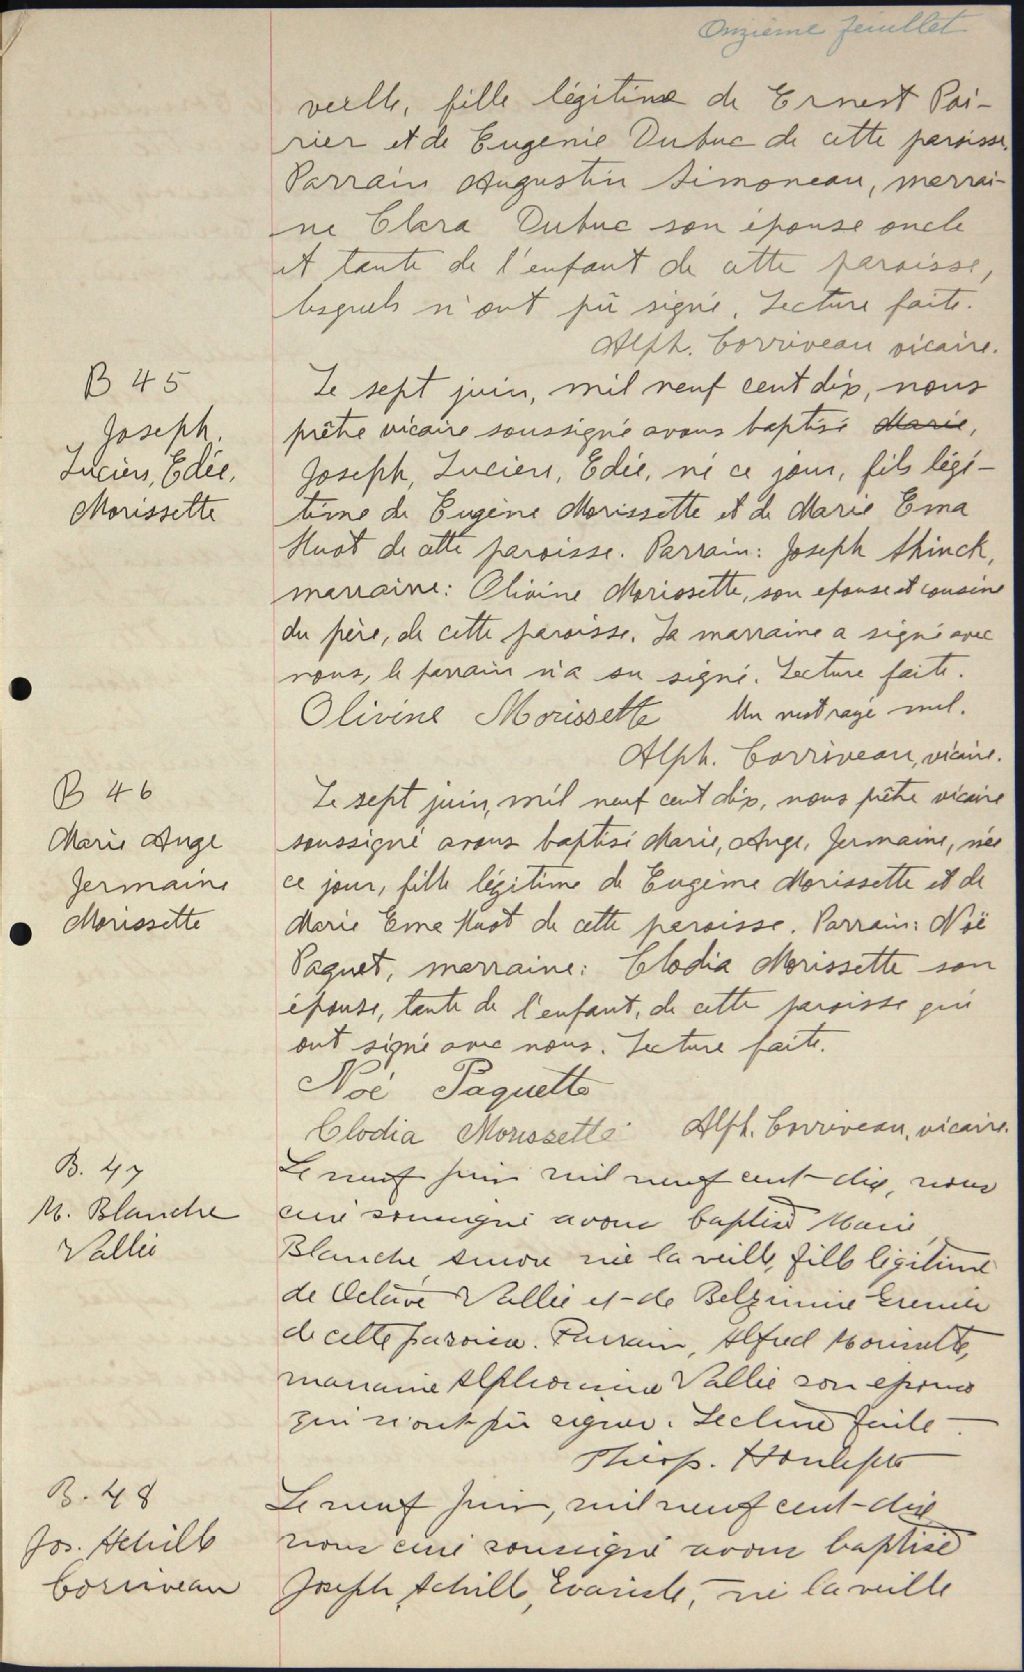 Onzième feuillet
veille, fille légitime de Ernest Poi-
rier et de Eugénie Dubuc de cette paroisse.
Parrain Augustin Simoneau, marrai-
ne Clara Dubuc son épouse oncle
et tante de l'enfant de cette paroisse,
lesquels n'ont pû signé. Lecture faite.
Alph. Corriveau vicaire.
B 45
Joseph,
Lucien, Edée,
Morissette
Le sept juin, mil neuf cent dix, nous
prêtre vicaire soussigné avons baptisé Marie,
Joseph, Lucien, Edée, né ce jour, fils légi-
time de Eugène Morissette et de Marie Ema
Huot de cette paroisse. Parrain: Joseph Shinck,
marraine: Olivine Morissette, son epouse et cousine
du père, de cette paroisse. La marraine a signé avec
nous, le parrain n'a su signé. Lecture faite.
Olivine Morissette Un mot rayé nul.
Alph. Corriveau, vicaire.
B 46
Marie Ange
Jermaine
Morissette
Le sept juin, mil neuf cent dix, nous prêtre vicaire
soussigné avons baptisé Marie, Ange, Jermaine, née
ce jour, fille légitime de Eugène Morissette et de
Marie Ema Huot de cette paroisse. Parrain: Noë
Paquet, marraine: Clodia Morissette son
épouse, tante de l'enfant, de cette paroisse qui
ont signé avec nous. Lecture faite.
Noé Paquette
Clodia Morissette Alph. Corriveau, vicaire.
B. 47
M. Blanche
Vallée
Le neuf juin mil neuf cent-dix, nous
curé soussigné avons baptisé Marie,
Blanche, née la veille, fille légitime
de Octave Vallée et de Belzimire Grenier
de cette paroisse. Parrain, Alfred Morissette,
marraine Alphonsine Vallée son epouse
qui n'ont pû signer. Lecture faite.
Théop. Houle ptre
B. 48
Jos. Achille
Corriveau
Le neuf juin, mil neuf cent-dix
nous curé soussigné avons baptisé
Joseph, Achille, Evariste, né la veille